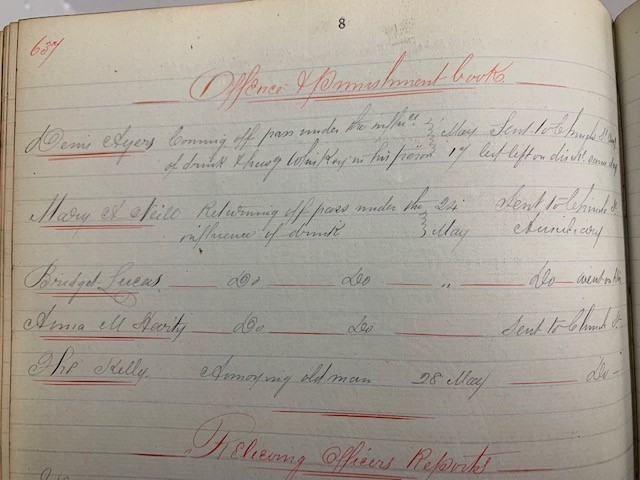 8
637
Offence & Punishment book
Denis Ayers Coming off pass under the influce May Sent to Church St
of drink & having Whiskey in his possion 17 but left on disch. same day
Mary A Neill Returning off pass under the 24 Sent to Church St
influence of drink May Auxiliary
Bridget Lucas Do Do " Do went out
Anna M Harty Do Do Sent to Church St
Ths Kelly. Annoying old man 28 May Do
Relieving Officers Reports